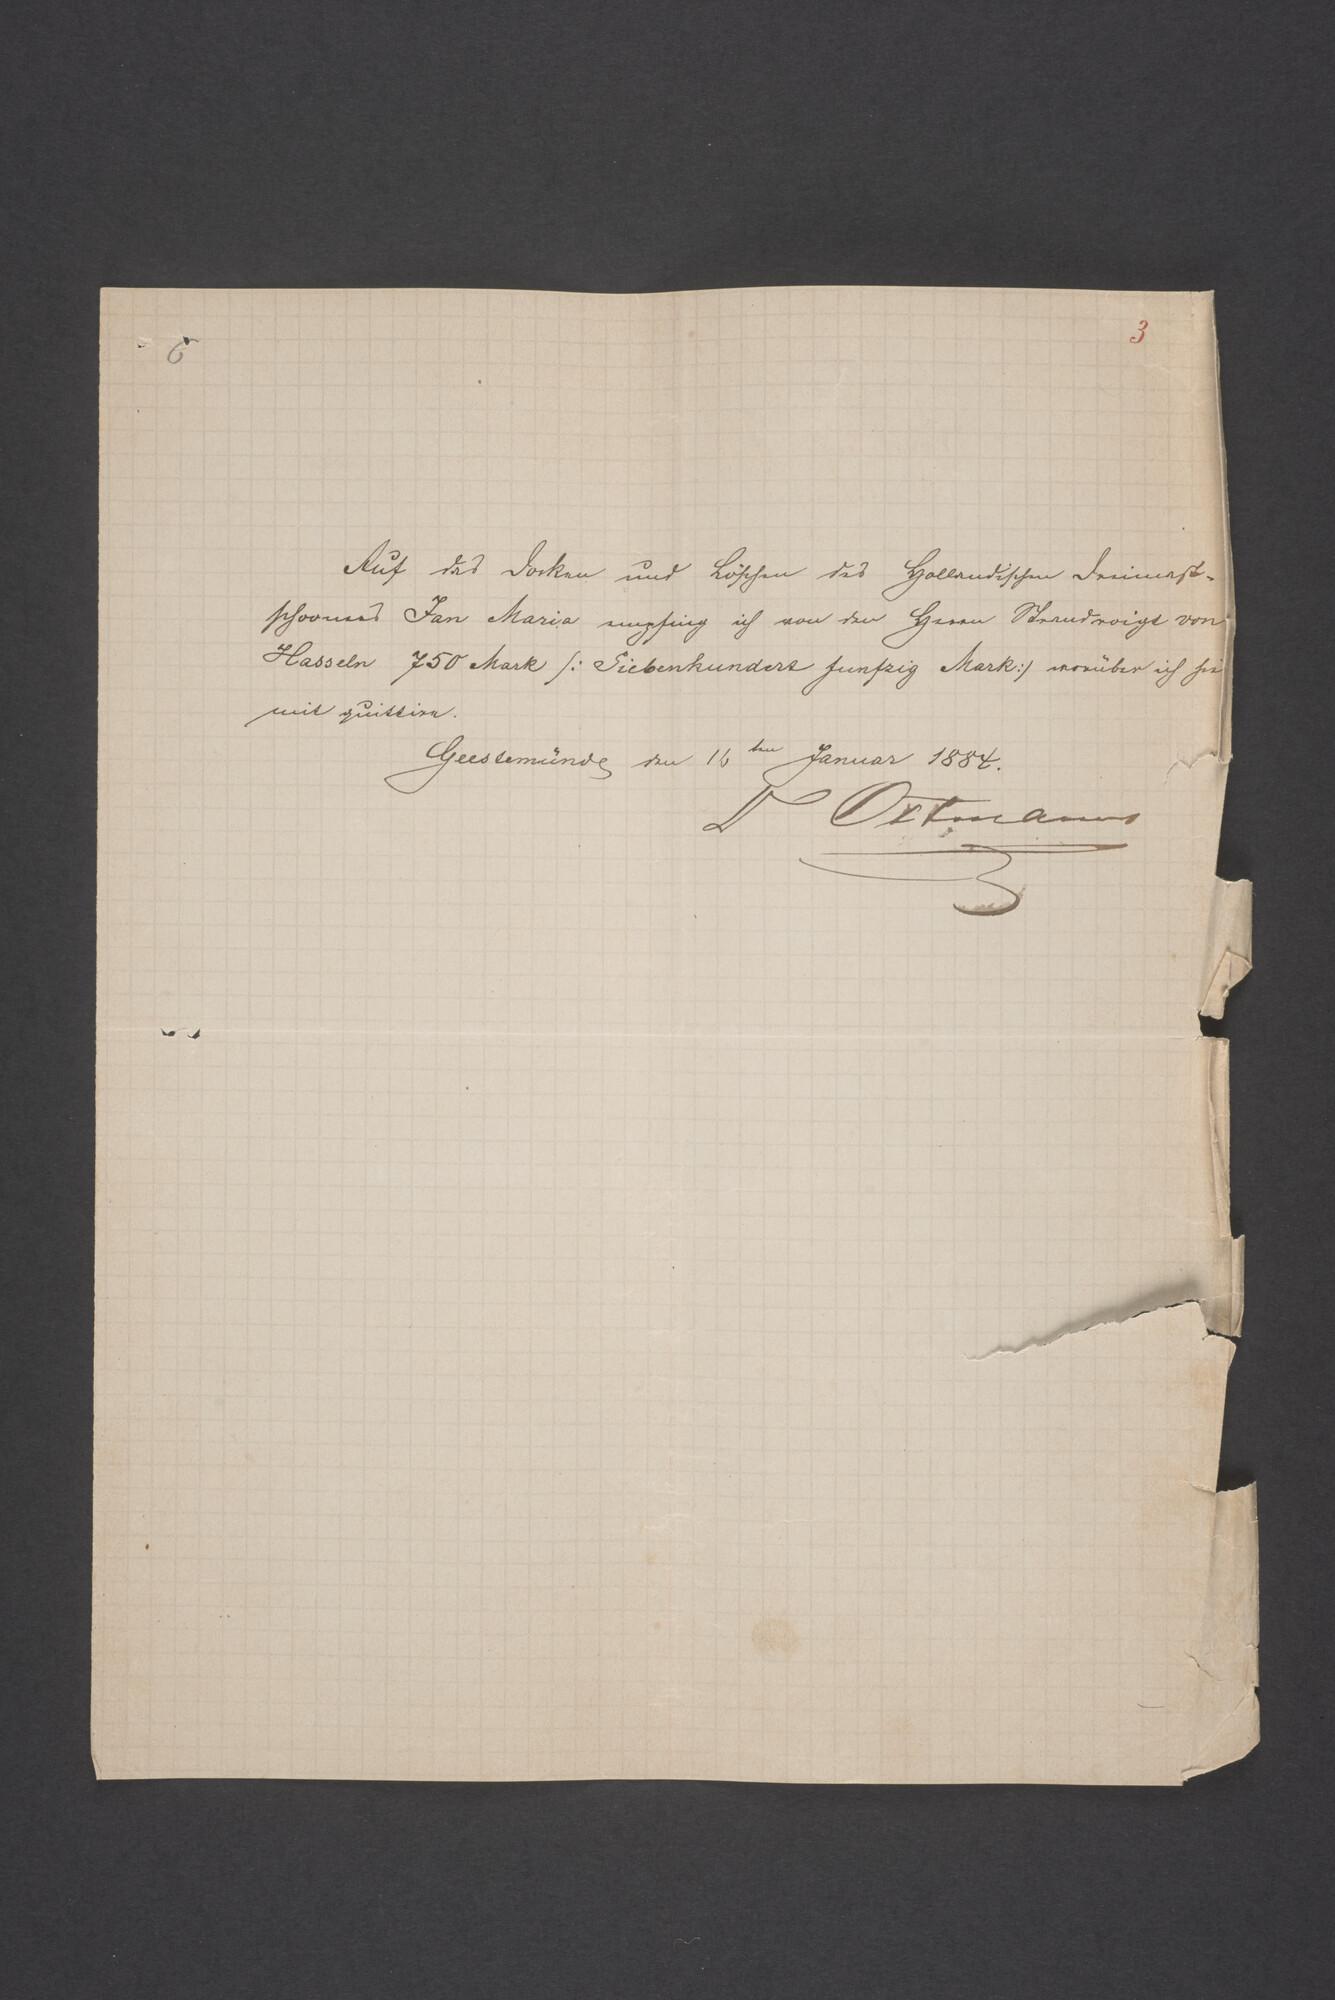 6
3
Auf das Docken und Löschen des Hollandischen Dreimast-
schooners Jan Maria empfing ich von den Herrn Strandvoigt von
Hasseln 750 Mark /: Siebenhundert funfzig Mark:/ worüber ich hie
mit quittire.
Geestemünde den 16ten Januar 1884.
D Oltmanns